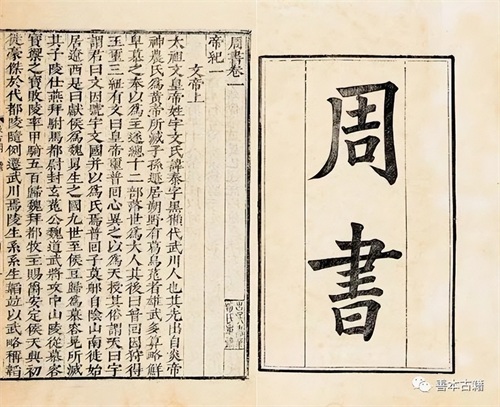 周書
周書卷一
帝紀一
文帝上
太祖文皇帝姓宇文氏諱泰字黑獺代武川人也其先出自炎帝
神農氏為黃帝所滅子孫遯居朔野有葛烏菟者雄武多算略鮮
卑慕之奉以為主遂總十二部落世為大人其後曰普回因狩得
玉璽三紐有文曰皇帝璽普回心異之以為天授其俗謂天曰宇
謂君曰文因號宇文國并以為氏焉普回子莫那自陰山南徙始
居遼西是曰獻侯為魏舅生之國九世至侯豆歸為慕容晃所滅
其子陵仕燕拜駙馬都尉封玄菟公魏道武將攻中山陵從慕容
寶禦之寶敗陵率甲騎五百歸魏拜都牧主賜爵安定侯天興初
徙豪傑於代都陵隨例遷武川焉陵生系系生韜竝以武略稱韜
善本古籍